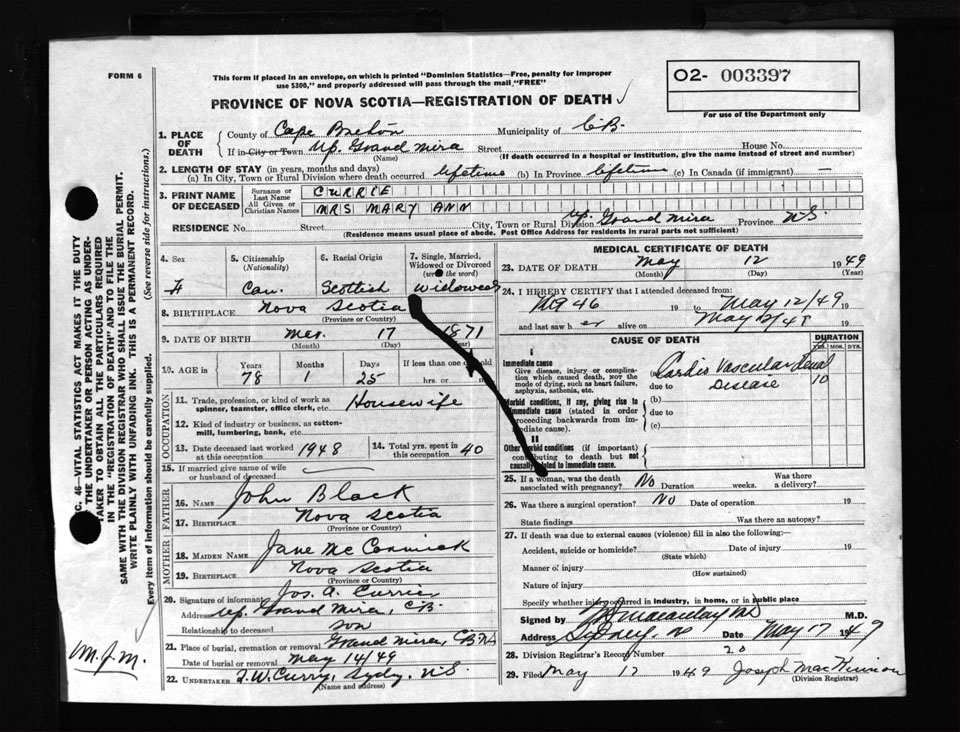 FORM 6
This form if placed in an envelope, on which is printed "Dominion Statistics—Free, penalty for improper
use $300," and properly addressed will pass through the mail "FREE"
02- 003397
For use of the Department only
PROVINCE OF NOVA SCOTIA—REGISTRATION OF DEATH
1. PLACE OF DEATH
County of Cape Breton Municipality of C.B.
If in City or Town Up. Grand Mira Street House No.
(Name) (If death occurred in a hospital or institution, give the name instead of street and number)
2. LENGTH OF STAY (in years, months and days)
(a) In City, Town or Rural Division where death occurred lifetime (b) In Province lifetime (c) In Canada (if immigrant) —
3. PRINT NAME OF DECEASED
Surname or Last Name CURRIE
All Given or Christian Names MRS MARY ANN
RESIDENCE No. Street City, Town or Rural Division Up. Grand Mira Province N.S.
(Residence means usual place of abode. Post Office Address for residents in rural parts not sufficient)
4. Sex F
5. Citizenship (Nationality) Can.
6. Racial Origin Scottish
7. Single, Married, Widowed or Divorced (write the word) Widowed
8. BIRTHPLACE Nova Scotia
(Province or Country)
9. DATE OF BIRTH Mar. 17 1871
(Month) (Day) (Year)
10. AGE in Years 78 Months 1 Days 25 If less than one old
hrs. or
OCCUPATION
11. Trade, profession, or kind of work as
spinner, teamster, office clerk, etc. Housewife
12. Kind of industry or business, as cotton-
mill, lumbering, bank, etc.
13. Date deceased last worked at this occupation 1948
14. Total yrs. spent in this occupation 40
15. If married give name of wife
or husband of deceased
FATHER
16. Name John Black
17. Birthplace Nova Scotia
(Province or Country)
MOTHER
18. Maiden Name Jane McCormick
19. Birthplace Nova Scotia
(Province or Country)
20. Signature of informant Jos. A. Currie
Address Up. Grand Mira, C.B.
Relationship to deceased son
21. Place of burial, cremation or removal Grand Mira, C.B. N.S.
Date of burial or removal May 14/49
22. Undertaker T.W. Curry, Sydy. N.S.
(Name and address)
MEDICAL CERTIFICATE OF DEATH
23. DATE OF DEATH May 12 1949
(Month) (Day) (Year)
24. I HEREBY CERTIFY that I attended deceased from:
46 19 to May 12/49 19
and last saw h er alive on May 19
CAUSE OF DEATH
DURATION
YRS. MOS. DYS.
I
Immediate cause
Give disease, injury or complica-
tion which caused death, not the
mode of dying, such as heart failure,
asphyxia, asthenia, etc.
(a) Cardio Vascular Renal
due to Disease 10
Morbid conditions, if any, giving rise to
immediate cause (stated in order
proceeding backwards from im-
mediate cause).
(b)
due to
(c)
II
Other morbid conditions (if important)
contributing to death but not
causally related to immediate cause.
25. If a woman, was the death
associated with pregnancy? No Duration weeks. Was there
a delivery?
26. Was there a surgical operation? No Date of operation 19
State findings Was there an autopsy?
27. If death was due to external causes (violence) fill in also the following:
Accident, suicide or homicide? Date of injury 19
(State which)
Manner of injury
(How sustained)
Nature of injury
Specify whether injury occurred in industry, in home, or in public place
Signed by M.D.
Address Sydney, N.S. Date May 17 1949
28. Division Registrar's Record Number 20
29. Filed May 17 1949 Joseph MacKinnon
(Division Registrar)
SEC. 46—VITAL STATISTICS ACT MAKES IT THE DUTY
OF THE UNDERTAKER OR PERSON ACTING AS UNDER-
TAKER TO OBTAIN ALL THE PARTICULARS REQUIRED
IN THE "REGISTRATION OF DEATH" AND TO FILE THE
SAME WITH THE DIVISION REGISTRAR WHO SHALL ISSUE THE BURIAL PERMIT.
WRITE PLAINLY WITH UNFADING INK. THIS IS A PERMANENT RECORD.
Every item of information should be carefully supplied. (See reverse side for instructions.)
M.J.M.